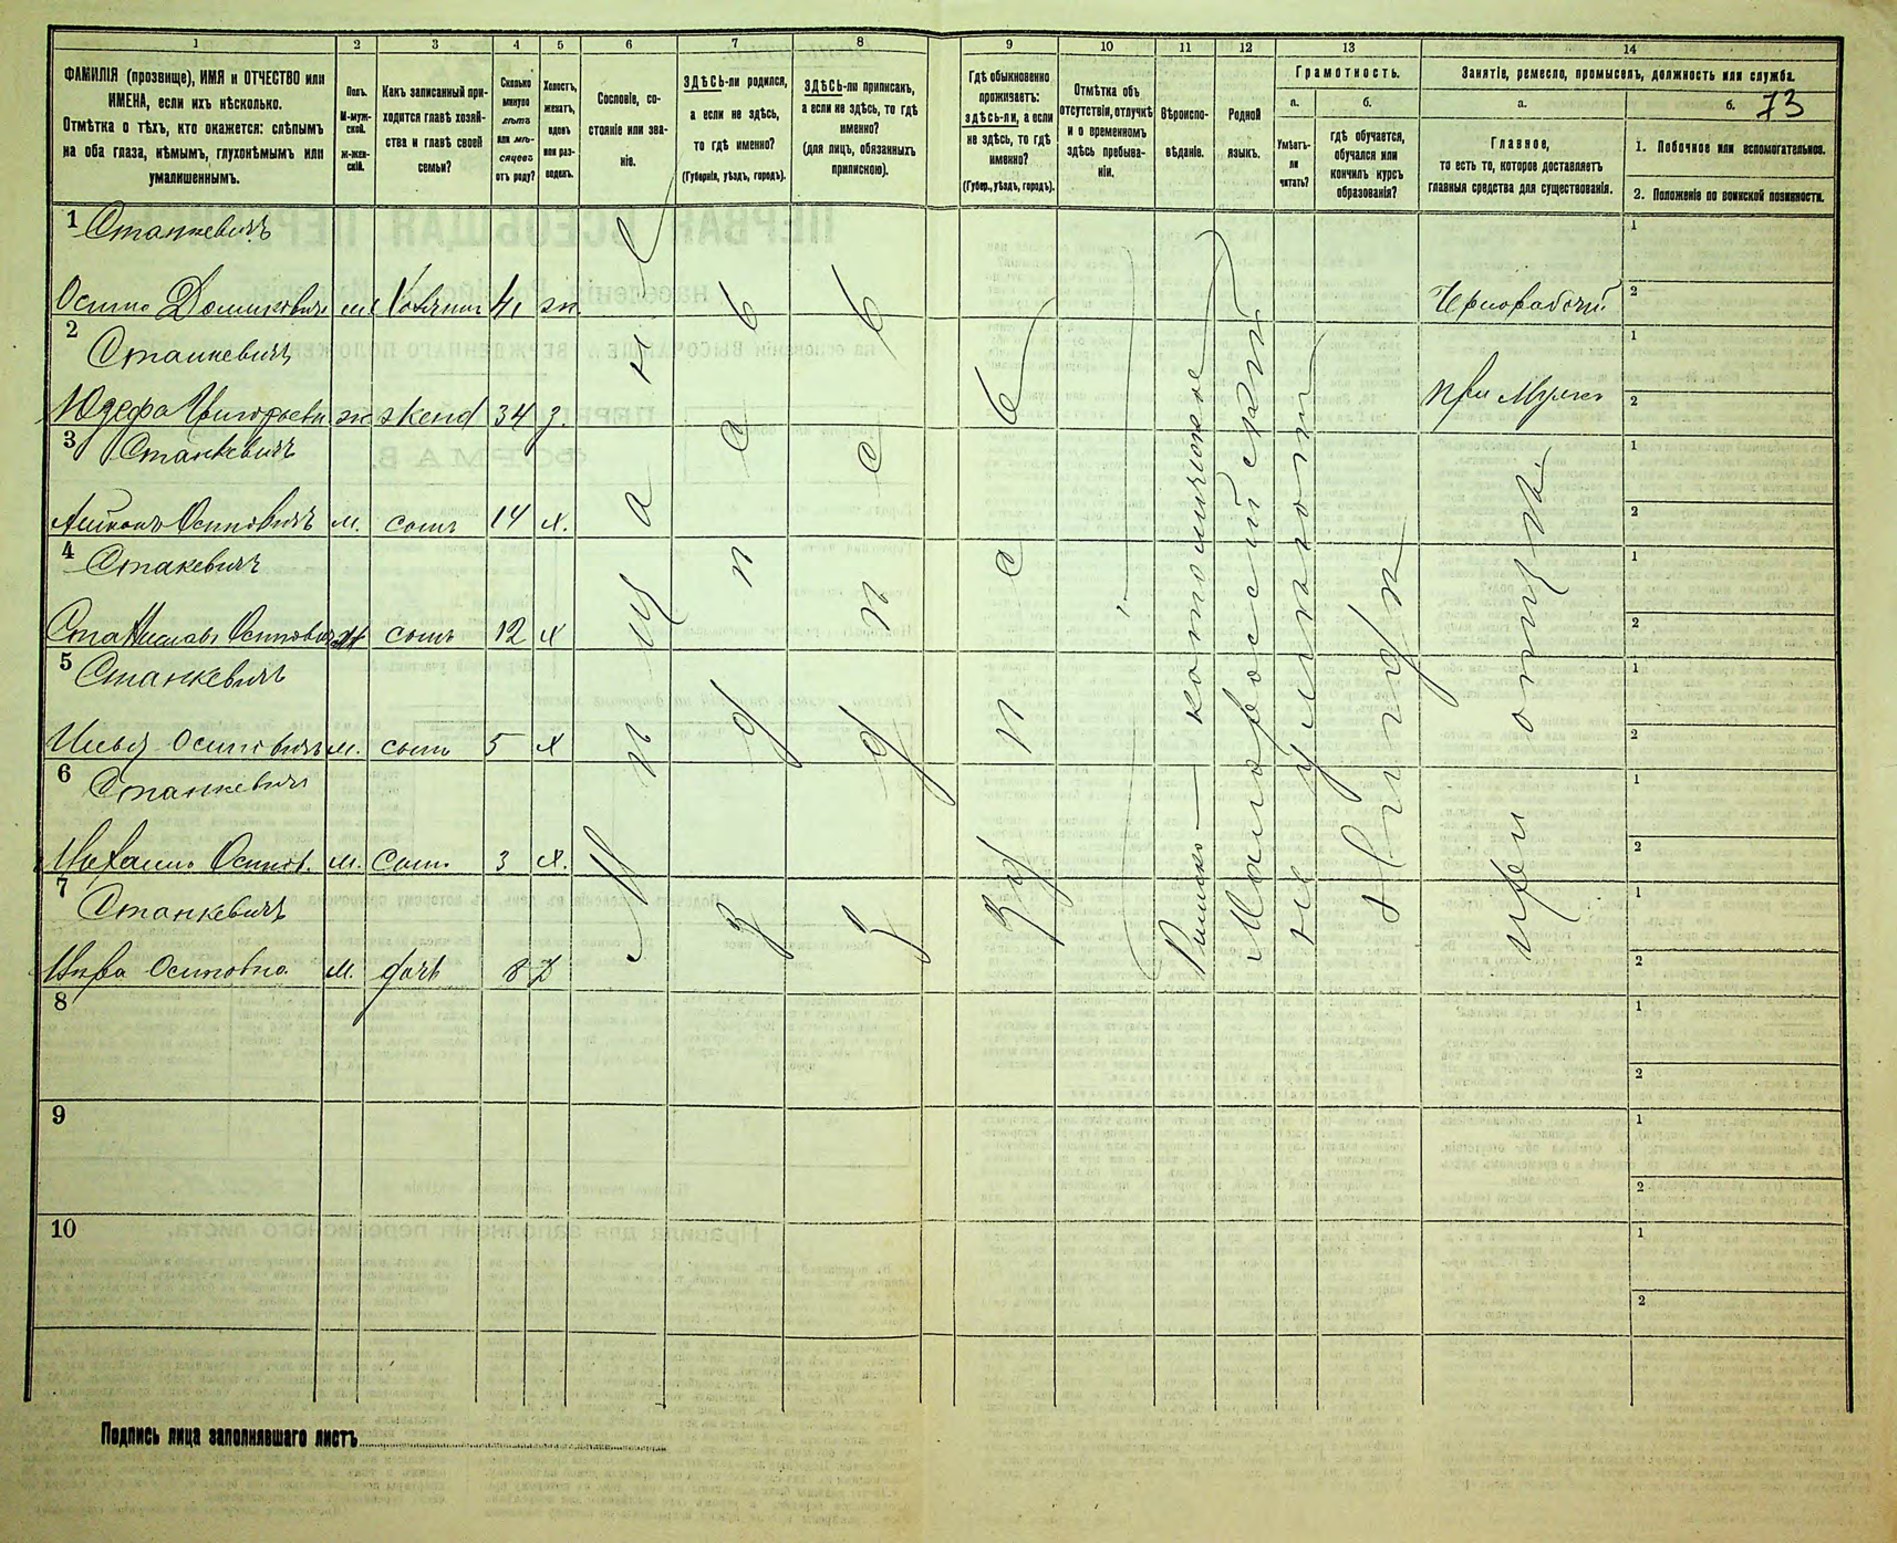 1 2 3 4 5 6 7 8 9 10 11 12 13 14
ФАМИЛІЯ (прозвище), ИМЯ и ОТЧЕСТВО или
ИМЕНА, если ихъ нѣсколько.
Отмѣтка о тѣхъ, кто окажется: слѣпымъ
на оба глаза, нѣмымъ, глухонѣмымъ или
умалишеннымъ.
Полъ.
М-муж-
ской.
ж-жен-
скій.
Какъ записанный при-
ходится главѣ хозяй-
ства и главѣ своей
семьи?
Сколько
минуло
лѣтъ
или мѣ-
сяцевъ
отъ роду?
Холостъ,
женатъ,
вдовъ
или раз-
веденъ.
Сословіе, со-
стояніе или зва-
ніе.
ЗДѢСЬ-ли родился,
а если не здѣсь,
то гдѣ именно?
(Губернія, уѣздъ, городъ).
ЗДѢСЬ-ли приписанъ,
а если не здѣсь, то гдѣ
именно?
(для лицъ, обязанныхъ
припискою).
Гдѣ обыкновенно
проживаетъ:
здѣсь-ли, а если
не здѣсь, то гдѣ
именно?
(Губер., уѣздъ, городъ).
Отмѣтка объ
отсутствіи, отлучкѣ
и о временномъ
здѣсь пребыва-
ніи.
Вѣроиспо-
вѣданіе.
Родной
языкъ.
Грамотность.
а.
Умѣетъ-
ли
читать?
б.
гдѣ обучается,
обучался или
кончилъ курсъ
образованія?
Занятіе, ремесло, промыселъ, должность или служба.
а.
Главное,
то есть то, которое доставляетъ
главныя средства для существованія.
б. 73
1. Побочное или вспомогательное.
2. Положеніе по воинской повинности.
1 Станкевичъ
Осипъ 41 Чернорабочій
2 Станкевичъ
Юзефа жена 34 з. при Мужѣ
3 Станкевичъ
Осиповичъ м. сынъ 14 х.
4 Стакевичъ
Станиславъ Осиповичъ м сынъ 12 х
5 Станкевичъ
Осиповичъ м. сынъ 5 х
6 Станкевичъ
Осипов. м. сынъ 3 х.
7 Станкевичъ
Осиповна м. дочь 8 д
8
9
10
Мѣщанинъ
здѣсь
здѣсь
здѣсь
Римско-католическое
Малороссійскій
не умѣютъ
при отцѣ
1
2
1
2
1
2
1
2
1
2
1
2
1
2
1
2
1
2
1
2
Подпись лица заполнявшаго листъ